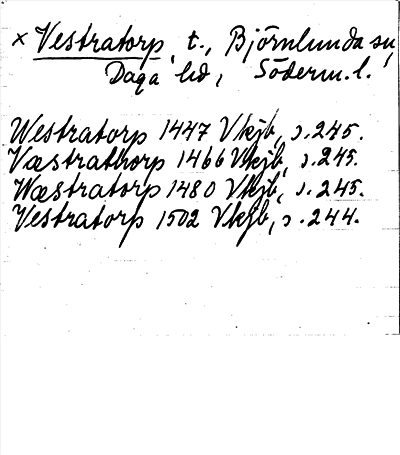 × Vestratorp, t., Björnlunda sn,
Daga hd, Söderm. l.
Westratorp 1447 Vkjb, s. 245.
Væstrathorp 1466 Vkjb, s. 245.
Wæstratorp 1480 Vkjb, s. 245.
Vestratorp 1502 Vkjb, s. 244.